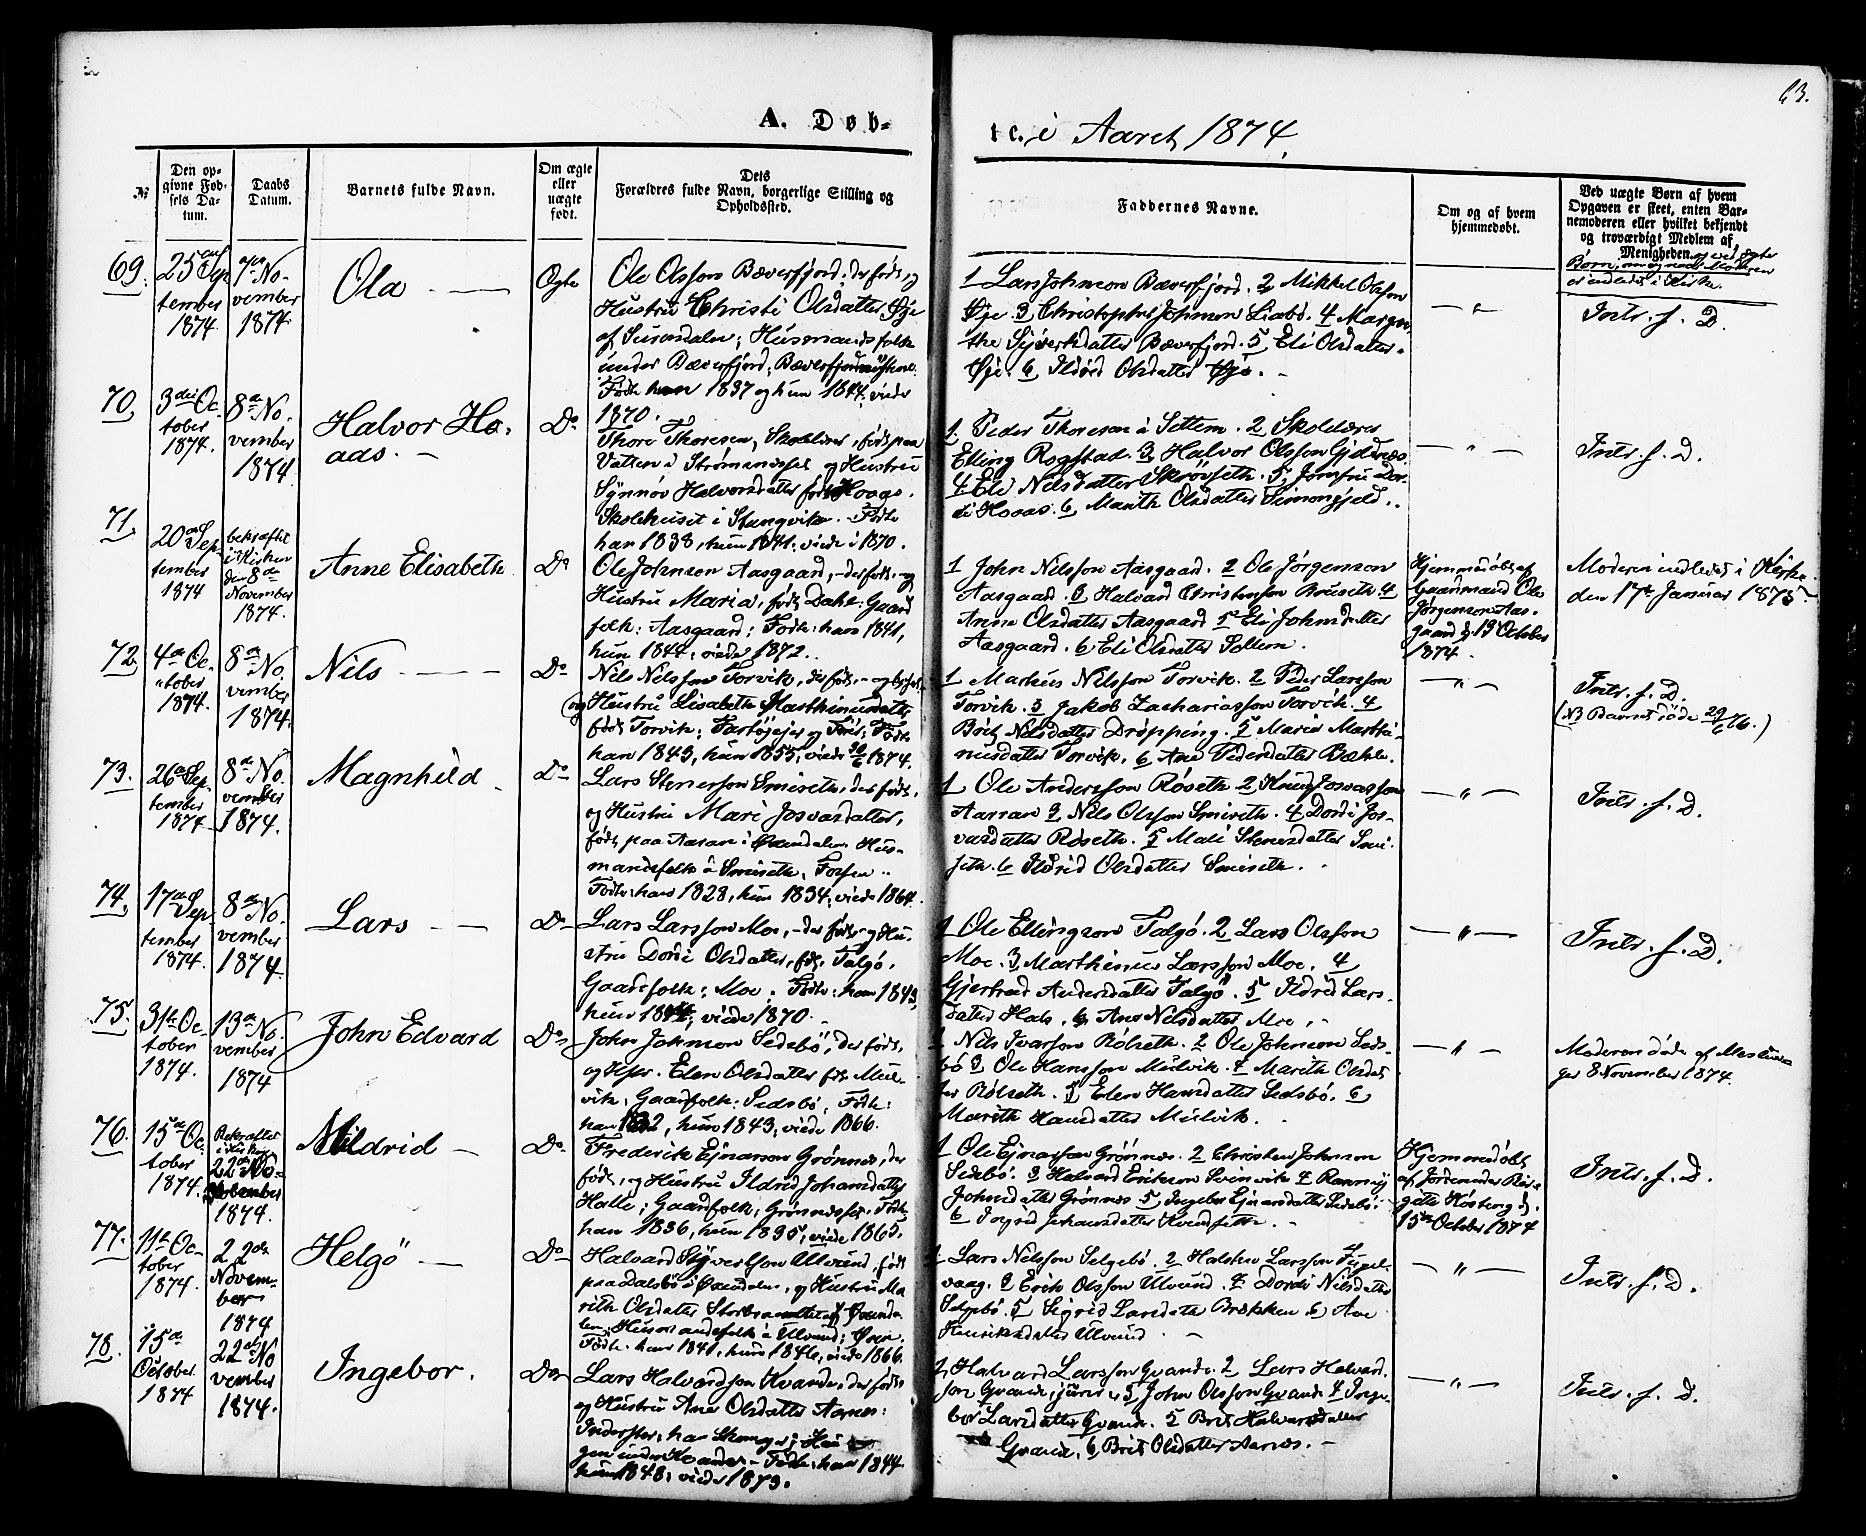 63.
A. Døb-
te. i Aaret 1874.
№
Den op-
givne Fød-
sels Da-
tum.
Daabs
Datum.
Barnets fulde Navn.
Om ægte
eller
uægte
født.
Dets
Forældres fulde Navn, borgerlige Stilling og
Opholdssted.
Faddernes Navne.
Om og af hvem
hjemmedøbt.
Ved uægte Børn af hvem
Opgaven er skeet, enten Bar-
nemoderen eller hvilket bekjendt
og troværdigt Medlem af
Menigheden,
69.
25 Sep
tember
1874
No-
vember
1874
Ola
Ægte
Ole Olsson Bæverfjord, der født, og
Hustru Christi Olsdatter Øye
af Surendalen; Husmandsfolk
under Bæverfjord;
Født han 1837 og hun 1844; viede
1870.
1 Lars Johnson Bæverfjord. 2 Mikkel Olsson
Øye. 3 Christopher Johnson Liabø. 4 Margre
the Sjverdsdatter Bæverfjord. 5 Eli Olsdatter
Øye. 6 Ildrid Olsdatter Øye.
Intr. f. D.
70,
3die Oc-
tober
1874.
8de No-
vember
1874
Halvor Ho-
aas.
Do
Thore Thoresen, Skolelærer, født paa
Vatten i Strømsnesset og Hustru
Synnøv Halvorsdatter født Hoaas.
Skolehuset i Stangvik. Født
han 1838, hun 1841; viede i 1870.
1 Peder Thoresen i Settem. 2 Skolelærer
Elling Rogstad. 3 Halvor Olsson Gjeldnæs.
4 Eli Nilsdatter Skrøvseth. 5 Jomfru Dor-
di Hoaas. 6 Marith Olsdatter Simonsjeld.
Intr. f. D.
71,
20 Sep
tember
1874
bekræftet
i Kirken
den 8de
November
1874.
Anne Elisabeth
Do
Ole Johnson Aasgaard, der født, og
Hustru Maria, født Dahle: Gaard
folk: Aasgaard: Født: han 1841,
hun 1844; viede 1872.
1 John Nilsson Aasgaard. 2 Ole Jørgenson
Aasgaard. 3 Halvard Christenson Bruseth 4
Anne Olsdatter Aasgaard 5 Eli Johnsdatter
Aasgaard. 6 Eli Olsdatter Settem.
Hjemmedøbt af
Gaardmand Ole
Jørgenson Aas-
gaard d 19 October
1874.
Moderen indledet i Kirke
den 17de Januar 1875.
72,
4de Oc-
tober
1874.
8de No-
vember
1874.
Nils
Do
Nils Nilsson Torvik, der født, og
Hustru Lisabeth Marthinusdatter
født Torvik; Født
han 1843, hun 1855; viede 30/6 1874.
1 Markus Nilsson Torvik. 2 Peder Larsson
Torvik. 3 Jakob Zachariasson Torvik. 4
Børit Nilsdatter Drøpping. 5 Maria Marthi-
nusdatter Torvik. 6 Ane Pedersdatter Bæhle.
Intr. f. D.
(NB Barnet døde 29/6 76.)
73.
26de Sep
tember
1874
8de No.
vember
1874.
Magnhild
Do
Lars Stenerson Smiseth, der født,
og Hustru Mari Josvasdatter,
født paa Aaran i Øxendalen. Hus-
mandsfolk i Smiseth, Torsen
Født: han 1828, hun 1834; viede 1864.
1 Ole Andersson Røseth. 2 Knut Josvasson
Aarran 3 Nils Olsson Smiseth. 4 Dordi Jos-
vasdatter Røseth. 5 Mali Stenersdatter Smi-
seth. 6 Ildrid Olsdatter Smiseth.
Intr. f. D.
74,
17de Sep
tember
1874.
8de No.
vember
1874.
Lars
Do
Lars Larsson Moe, der født, og Hu-
stru Dordi Olsdatter, født Talgø.
Gaardfolk; Moe. Født: han 1843,
hun 1844; viede 1870.
1 Ole Ellingson Talgø. 2 Lars Olsson
Moe. 3 Marthinus Larsson Moe. 4
Gjertrud Andersdatter Talgø. 5 Ildrid Lars-
datter Hals. 6 Ane Nilsdatter Moe.
Intr. f. D.
75.
31te Oc-
tober
1874.
13de No-
vember
1874
John Edvard
Do
John Johnson Sedsbø, der født,
og Elen Olsdatter født Mul-
vik; Gaardfolk: Sedsbø. Født:
han 1832, hun 1843; viede 1866.
1 Nils Ivarson Rølseth. 2 Ole Johnson Seds-
bø 3 Ole Hansson Mulvik. 4 Marith Olsdat
ter Rølseth. 5 Elen Hansdatter Sedsbø. 6
Marith Hansdatter Mulvik.
Moderen døde af Meslinger
8 November 1874.
76.
15de Oc-
tober
1874.
Bekræftet
i Kirken
22de No-
vember
1874.
Mildrid
Do
Frederik Ejnarson Grønnes, der
født, og Hustru Ildrid Johansdatter
Halle; Gaardfolk; Grønnesset. Født
han 1836, hun 1835; viede 1865.
1 Ole Ejnarson Grønnes. 2 Christen Johnson
Sedsbø. 3 Halvard Erikson Svinvik 4 Rannvei
Johnsdatter Grønnes 5 Ingebor Ejnarsdatter Sedsbø.
6 Ingrid Johansdatter Kvendset.
Hjemmedøbt
af Jordemoder Bir-
gitte Høsberg d.
15de October 1874
Intr. f. D.
77.
11te Oc-
tober
1874.
22de
Novem-
ber
1874
Helgø
Do
Halvard Syvertson Ulvund, født
paa Dalsbø i Øxendalen, og Hustru Ma-
rith Olsdatter af Øxenda-
len; Husmandsfolk i Ulvund; Øren.
Født: han 1841, hun 1846; viede 1866.
1 Lars Nilsson Selgebø. 2 Halsten Larsson Fugel-
vaag. 3 Erik Olsson Ulvund. 4 Dordi Nilsdatter
Selgebø. 5 Sigrid Larsdatter Brækken 6 Ane
Henriksdatter Ulvund
Intr. f. D.
78.
15de
October
1874
22de No
vember
1874.
Ingebor.
Do
Lars Halvardson Kvande, der født
og Hustru Ane Olsdatter Aarnes:
Inderster; han Skomager;
Født: han 1844.
hun 1848; viede 1873.
1 Halvard Larsson Qvande. 2 Lars Halvard-
son Qvande, junior 3 John Olsson Qvande 4 Inge-
bor Larsdatter Qvande. 5 Brit Halvarsdatter
Qvande. 6 Brit Olsdatter Aarnes.
Intr. f. D.